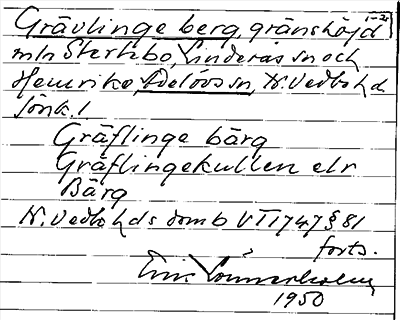 Grävlinge berg, gränshöjd 1-2
mln Sterkebo, Linderås sn och
Henriko, Adelövs sn, N. Vedbo hd
Jönk. l
Gräflinge bärg
Gräflingekullen elr
Bärg
N. Vedbo hds domb VT 1747 § 81
forts.
Eric Lönnerholm
1950